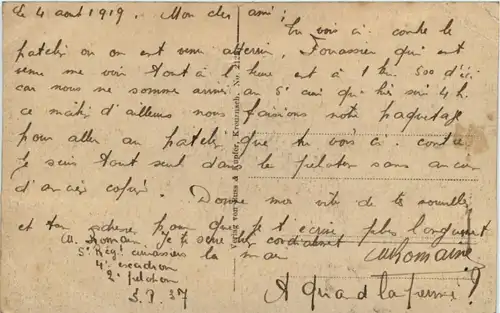 Le 4 août 1919. Mon cher ami:
Tu vois ci contre le
patelin ou on est venu atterrir, Fouassier qui est
venu me voir tout à l'heure est à 1 km. 500 d'ici
car nous ne somme arrivé au 5e cui que hier soir 4 h.
ce matin d'ailleurs nous faisions notre paquetage
pour aller au patelin que tu vois ci contre
je suis tout seul dans le peloton sans aucun
d'ancien copin. Donne moi vite de te nouvelles
et ton adresse pour que je t'écrive plus longuement
je te serre cordialement
la main
M. Romain
5e Rég. cuirassiers
4e escadron
2e peloton
S.P. 37
MRomain
A quand la perme!
Verlag von & Kuepfer, Kreuznach. No.